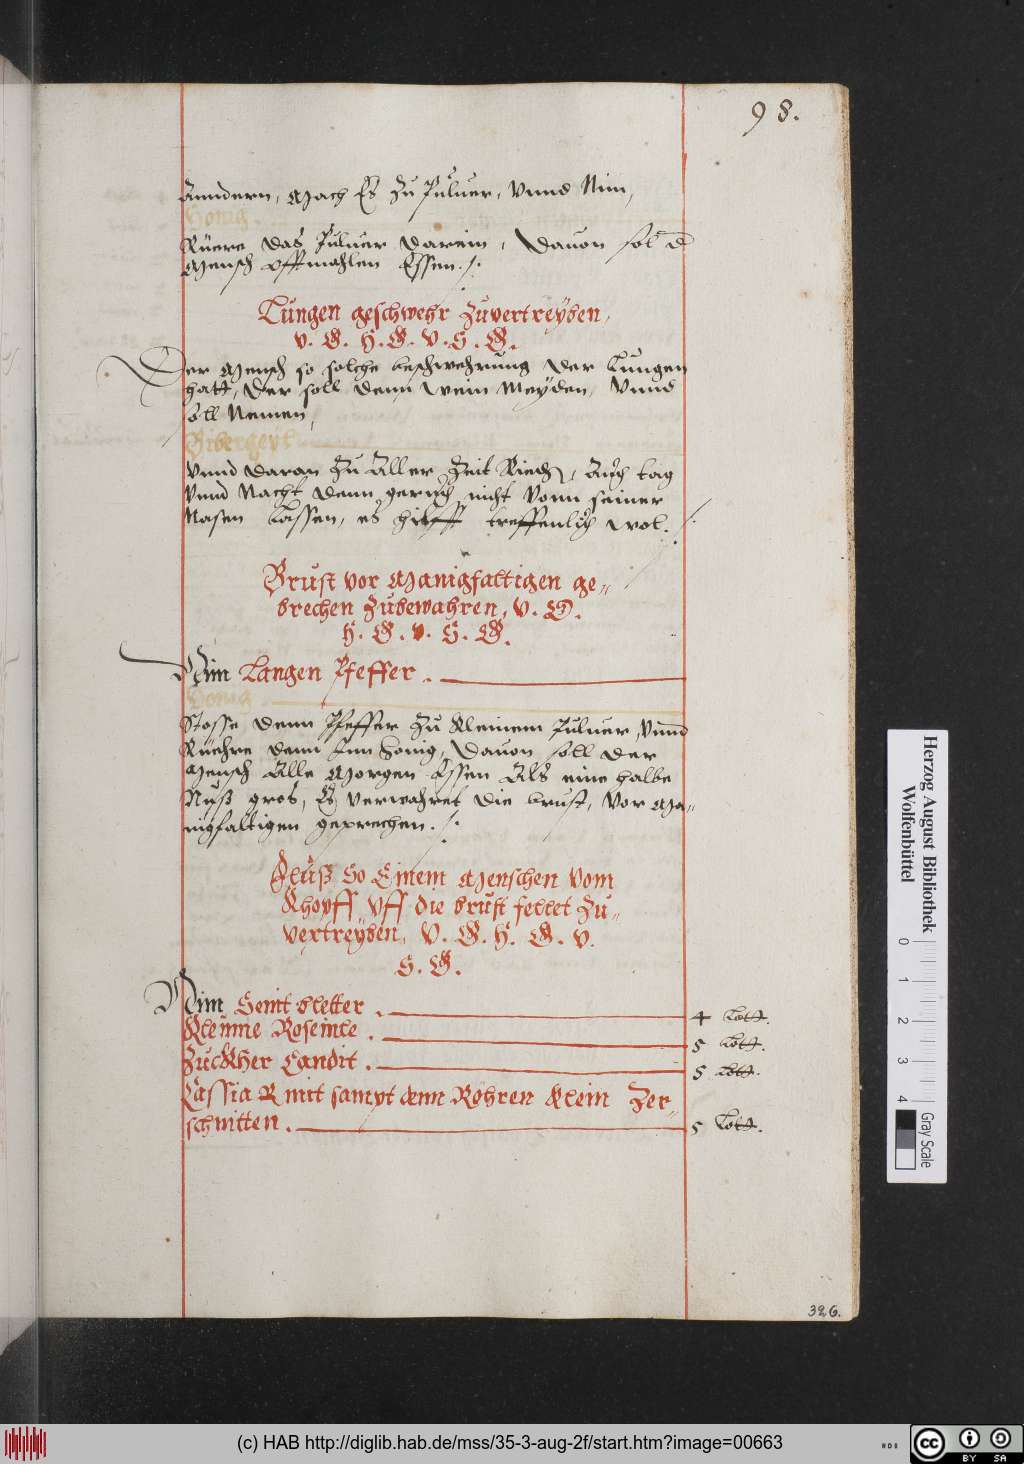 98.
Zundern, Mach Es Zu Puluer, Vnnd Nim,
Honig.
Rüere das Puluer darein, dauon sol d
Mensch offtmahlen Essen ./.
Lungen geschwehr Zuvertreÿben,
v. G. H. G. V. S. G.
Der Mensch so solche beschwehrung der Lungen
hatt, der soll denn wein Meÿden, Vnnd
soll Nemen,
Bibergeÿl
Vnnd daran Zu Aller Zeit Riech, Auch tag
Vnnd Nacht denn geruch nicht Vonn seiner
Nasen Lassen, es hilfft treffenlich wol. ./.
Brust vor Manigfaltigen ge„
brechen Zubewahren, v. G.
H. G. v. S. G.
Nim Langen Pfeffer .
Honig
Stosse denn Pfeffer Zu Kleinem Puluer, Vnnd
Rüehre denn Inn honig, dauon soll der
Mensch Alle Morgen Essen Als eine halbe
Nuß gros, Es verwahret die brust, vor Ma„
nigfaltigen geprechen ./.
Fluß So Einem Menschen Vom
Khopff Vff die brust fellet Zu„
vertreÿben, V. G. H. G. v.
S. G.
Nim Senit bletter . 4 Lott.
Kleinne Roseinle . 5 Lott.
Zuckher Candit . 5 Lott.
Cassia R mit sampt denn Röhren klein Zer„
schnitten . 5 Lott.
326.
Herzog August Bibliothek
Wolfenbüttel
0 1 2 3 4
Gray Scale
(c) HAB http://diglib.hab.de/mss/35-3-aug-2f/start.htm?image=00663
cc BY SA